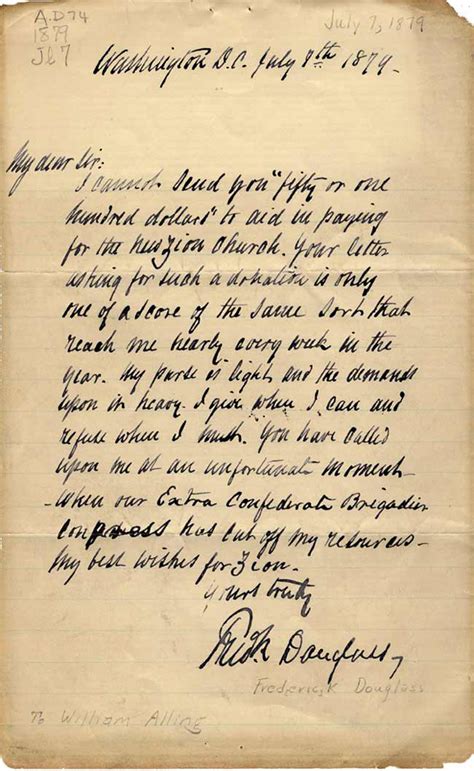 A.D74
1879
Jl 7
July 7, 1879
Washington D.C. July 7th 1879.
My dear Sir:
I cannot send you "fifty or one
hundred dollars" to aid in paying
for the new Zion Church. Your letter
asking for such a donation is only
one of a score of the same sort that
reach me nearly every week in the
year. My purse is light and the demands
upon it heavy. I give when I can and
refuse when I must. You have called
upon me at an unfortunate moment
- when our Extra Confederate Brigadier
Congress has cut off my resources -
My best wishes for Zion.
Yours truly
Fredk Douglass
Frederick Douglass
To William Alling